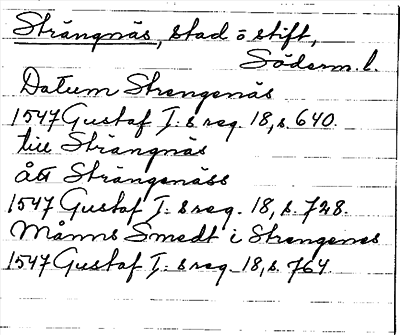 Strängnäs, stad o stift,
Söderm. l.
Datum Strengenäs
1547 Gustaf I:s reg. 18, s. 640.
till Strängnäs
ått Strängenäss
1547 Gustaf I:s reg. 18, s. 728.
Måns Smedt i Strengenes
1547 Gustaf I:s reg 18, s. 764